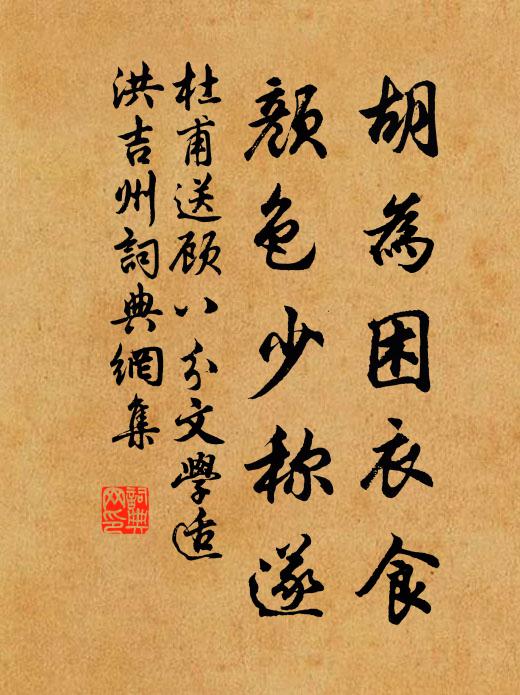 胡為困衣食
顏色少称遂
杜甫送顾八分文學适
洪吉州詞典網集
詞典
网印